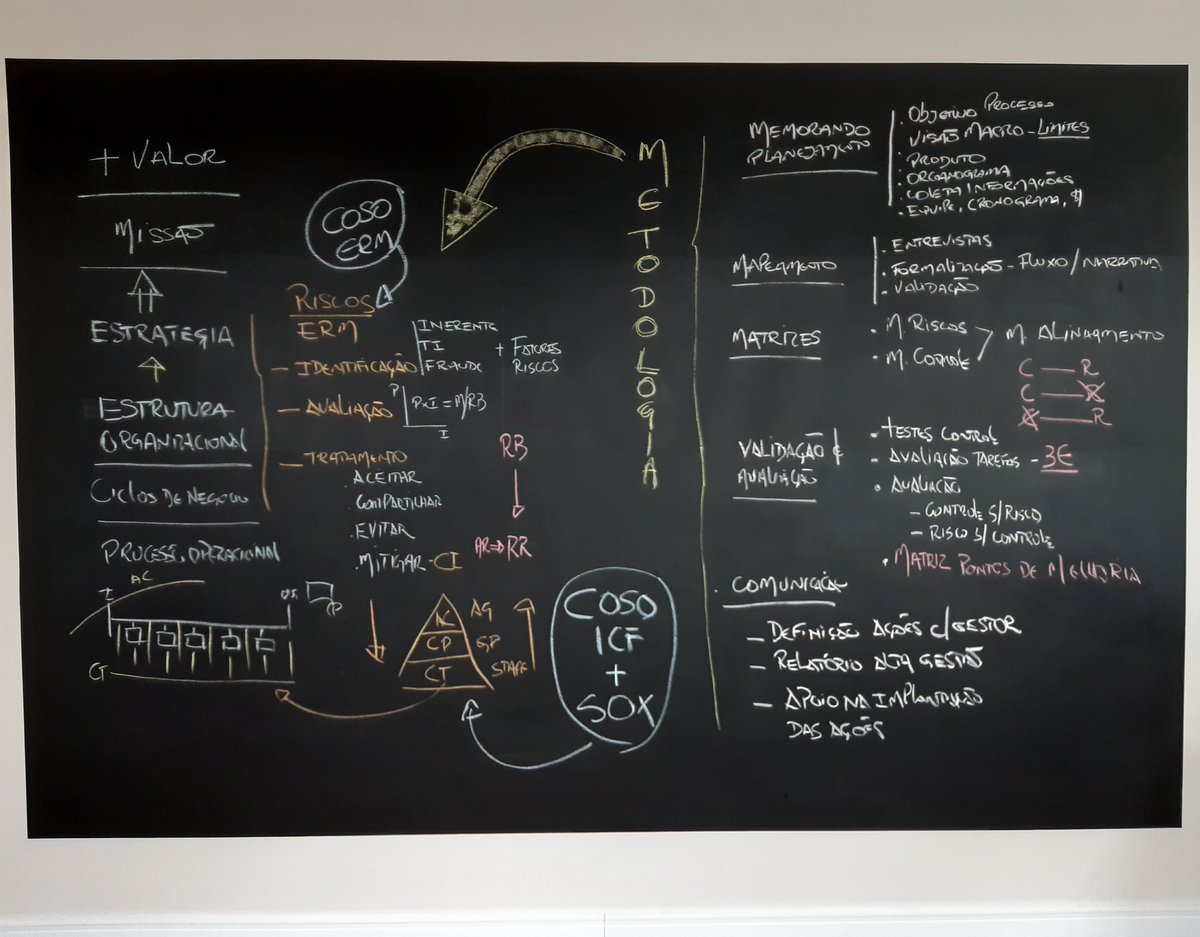 + VALOR
MISSÃO
ESTRATEGIA
ESTRUTURA
ORGANIZACIONAL
CICLOS DE NEGÓCIO
PROCESS. OPERACIONAL
AC
CT
COSO
ERM
RISCOS
ERM
- IDENTIFICAÇÃO
INERENTE
TI
FRAUDE
+ FATORES
RISCOS
- AVALIAÇÃO
P
PxI = M/RB
I
- TRATAMENTO
. ACEITAR
. COMPARTILHAR
. EVITAR
. MITIGAR - CI
RB
AR ⇒ RR
AC AG
CP GP
CT STAFF
COSO
ICF
+
SOX
METODOLOGIA
MEMORANDO
PLANEJAMENTO
. OBJETIVO PROCESSO
. VISÃO MACRO - LIMITES
. PRODUTO
. ORGANOGRAMA
. COLETA INFORMAÇÕES
. EQUIPE, CRONOGRAMA, $
MAPEAMENTO
. ENTREVISTAS
. FORMALIZAÇÃO - FLUXO / NARRATIVA
. VALIDAÇÃO
MATRIZES
. M. RISCOS
. M. CONTROLE
M. ALINHAMENTO
C — R
C — R
C — R
VALIDAÇÃO &
AVALIAÇÃO
. TESTES CONTROLE
. AVALIAÇÃO TAREFAS - 3E
. AVALIAÇÃO
- CONTROLE S/ RISCO
- RISCO S/ CONTROLE
. MATRIZ PONTOS DE MELHORIA
. COMUNICAÇÃO
- DEFINIÇÃO AÇÕES C/ GESTOR
- RELATÓRIO ALTA GESTÃO
- APOIO NA IMPLANTAÇÃO
DAS AÇÕES